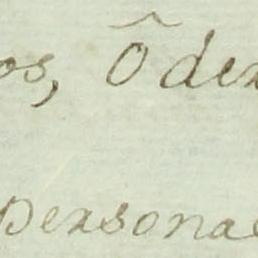 os, Ô dex
Dexsonae